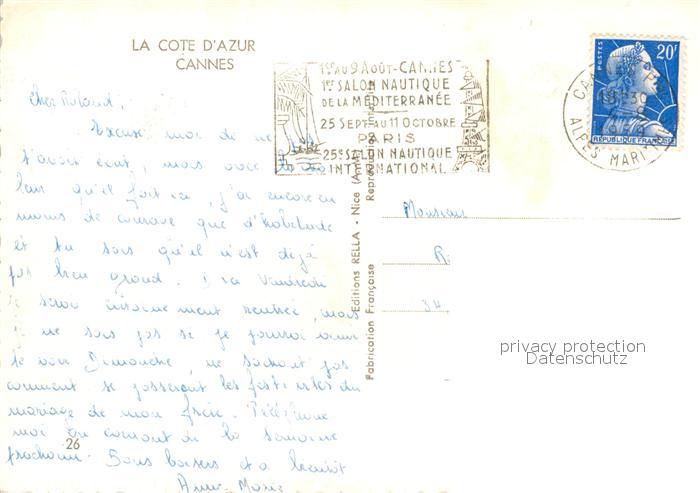 LA COTE D'AZUR
CANNES
1er AU 9 AOÛT-CANNES
1er SALON NAUTIQUE
DE LA MÉDITERRANÉE
25 SEPT AU 11 OCTOBRE
PARIS
25e SALON NAUTIQUE
INTERNATIONAL
POSTES
20F
REPUBLIQUE FRANÇAISE
ALPES MARIT
Cher Roland,
Excuse moi de ne pas
t'avoir écrit, mais avec
qu'il fait ici, j'ai encore
moins de courage que d'habitude
et tu sais qu'il n'est déjà
pas bien grand. Vendredi
je serai rentrée, mais
je ne sais pas si je pourrai venir
te voir Dimanche, ne sachant pas
comment se passeront les festivités du
mariage de mon frère. Téléphone
moi au courant de la semaine
prochaine. Bons baisers et à bientôt
Anne-Marie
26
Editions RELLA - Nice
Fabrication Française
Reproduction
Monsieur
R.
34
privacy protection
Datenschutz